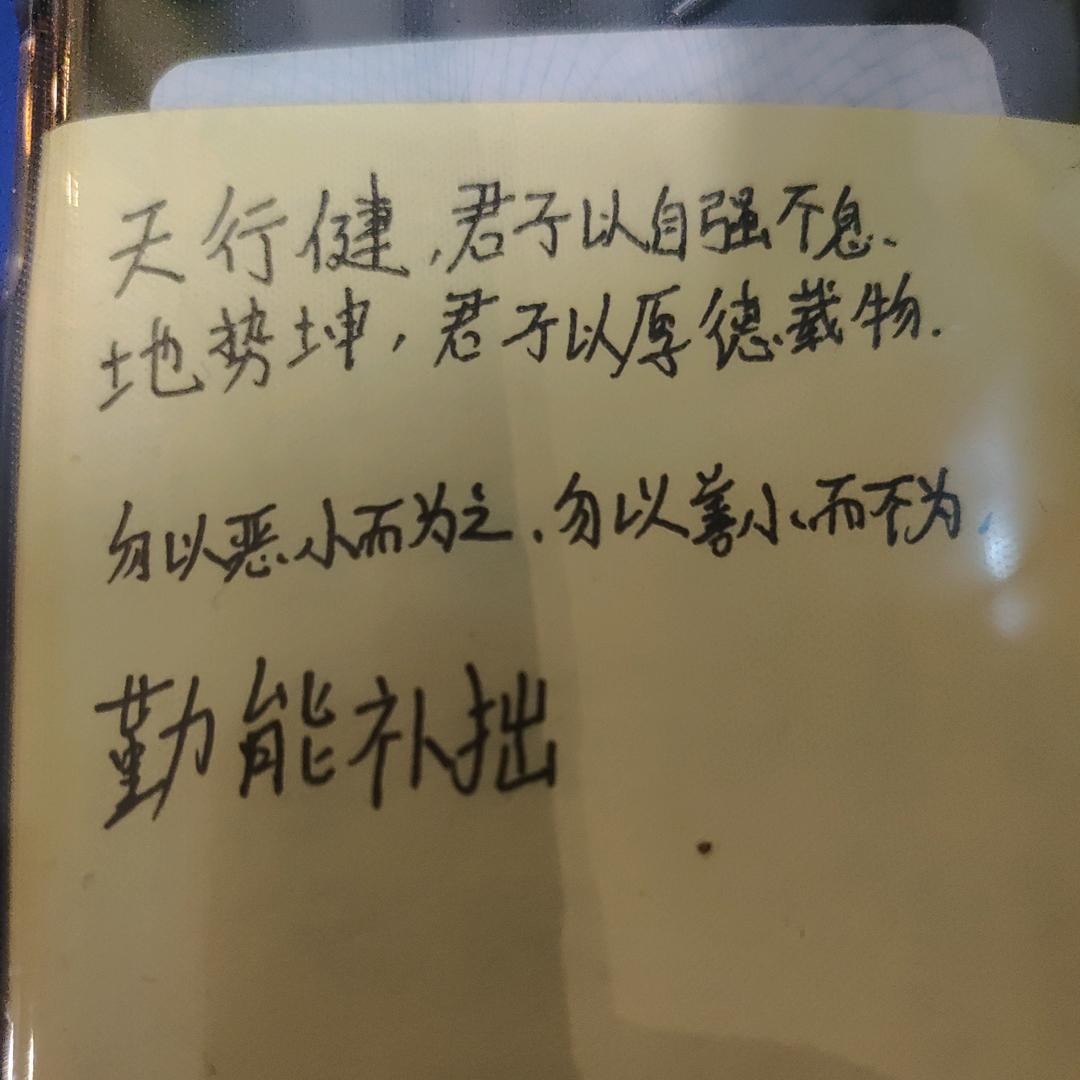 天行健,君子以自强不息.
地势坤,君子以厚德载物.
勿以恶小而为之.勿以善小而不为.
勤能补拙